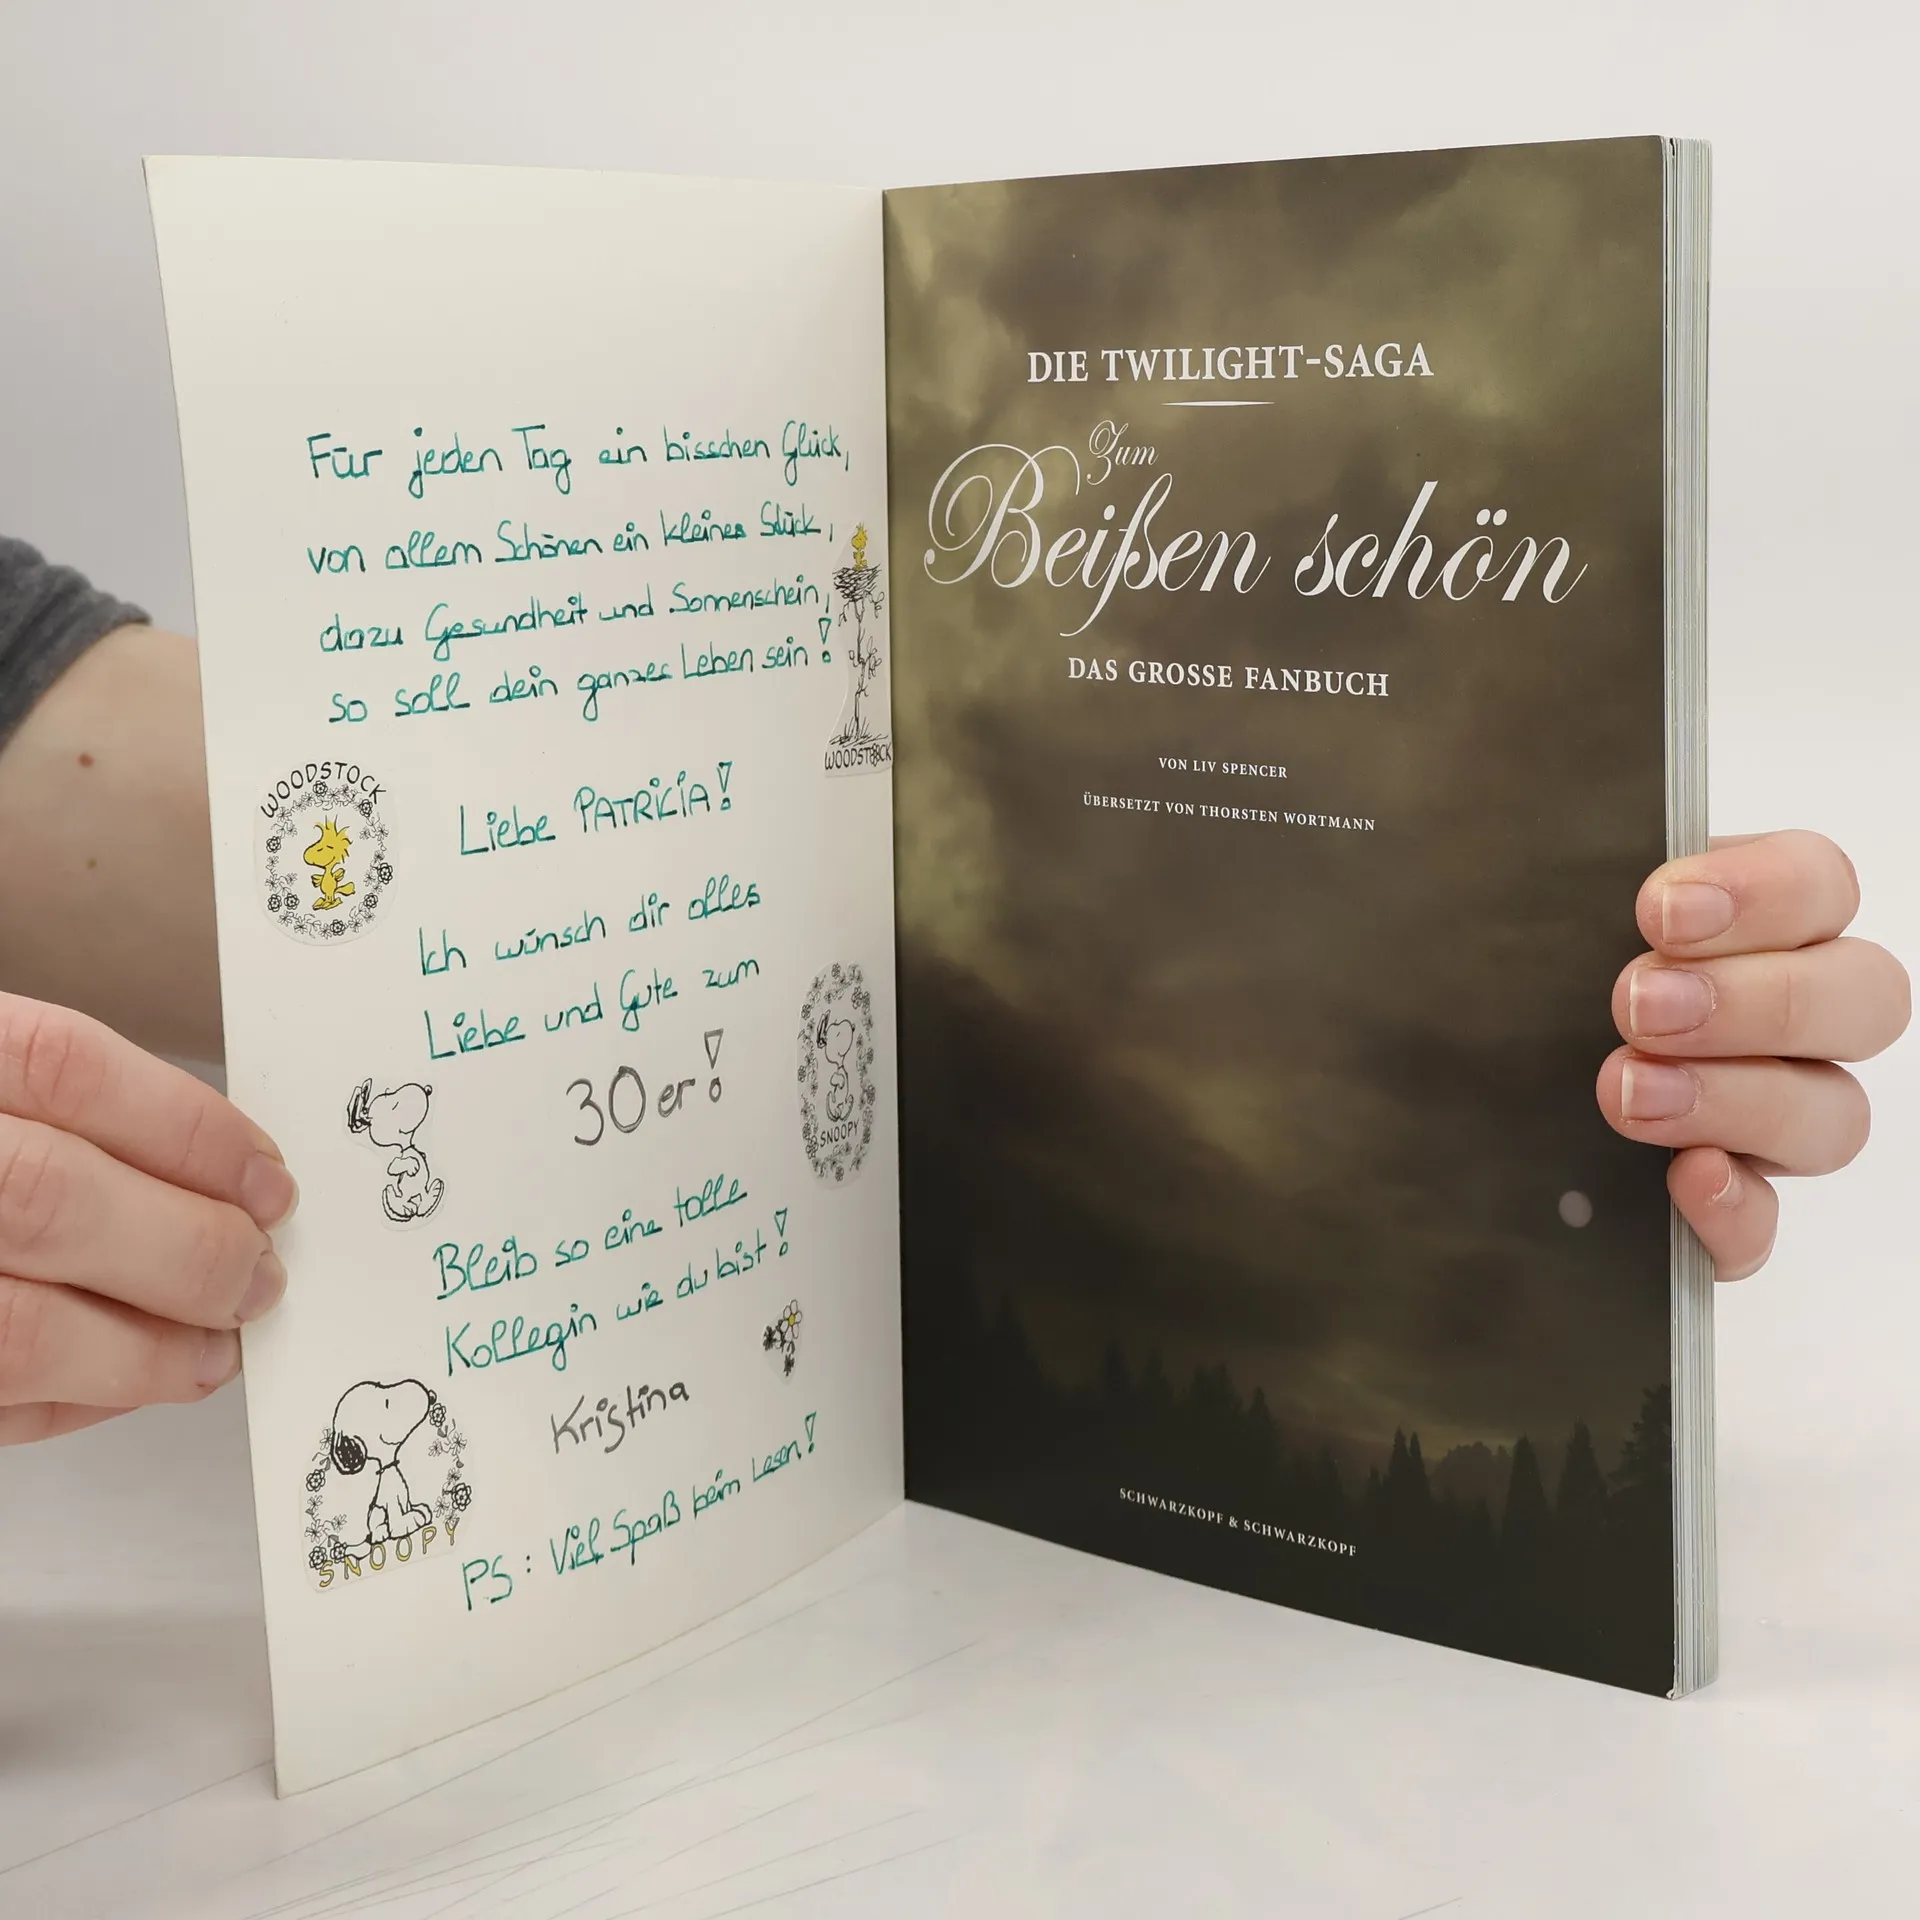 Für jeden Tag ein bisschen Glück,
von allem Schönen ein kleines Stück,
dazu Gesundheit und Sonnenschein,
so soll dein ganzes Leben sein!
WOODSTOCK
WOODSTOCK
Liebe PATRICIA!
Ich wünsch dir alles
Liebe und Gute zum
30er!
SNOOPY
Bleib so eine tolle
Kollegin wie du bist!
Kristina
SNOOPY
PS: Viel Spaß beim Lesen!
DIE TWILIGHT-SAGA
Zum
Beißen schön
DAS GROSSE FANBUCH
VON LIV SPENCER
ÜBERSETZT VON THORSTEN WORTMANN
SCHWARZKOPF & SCHWARZKOPF